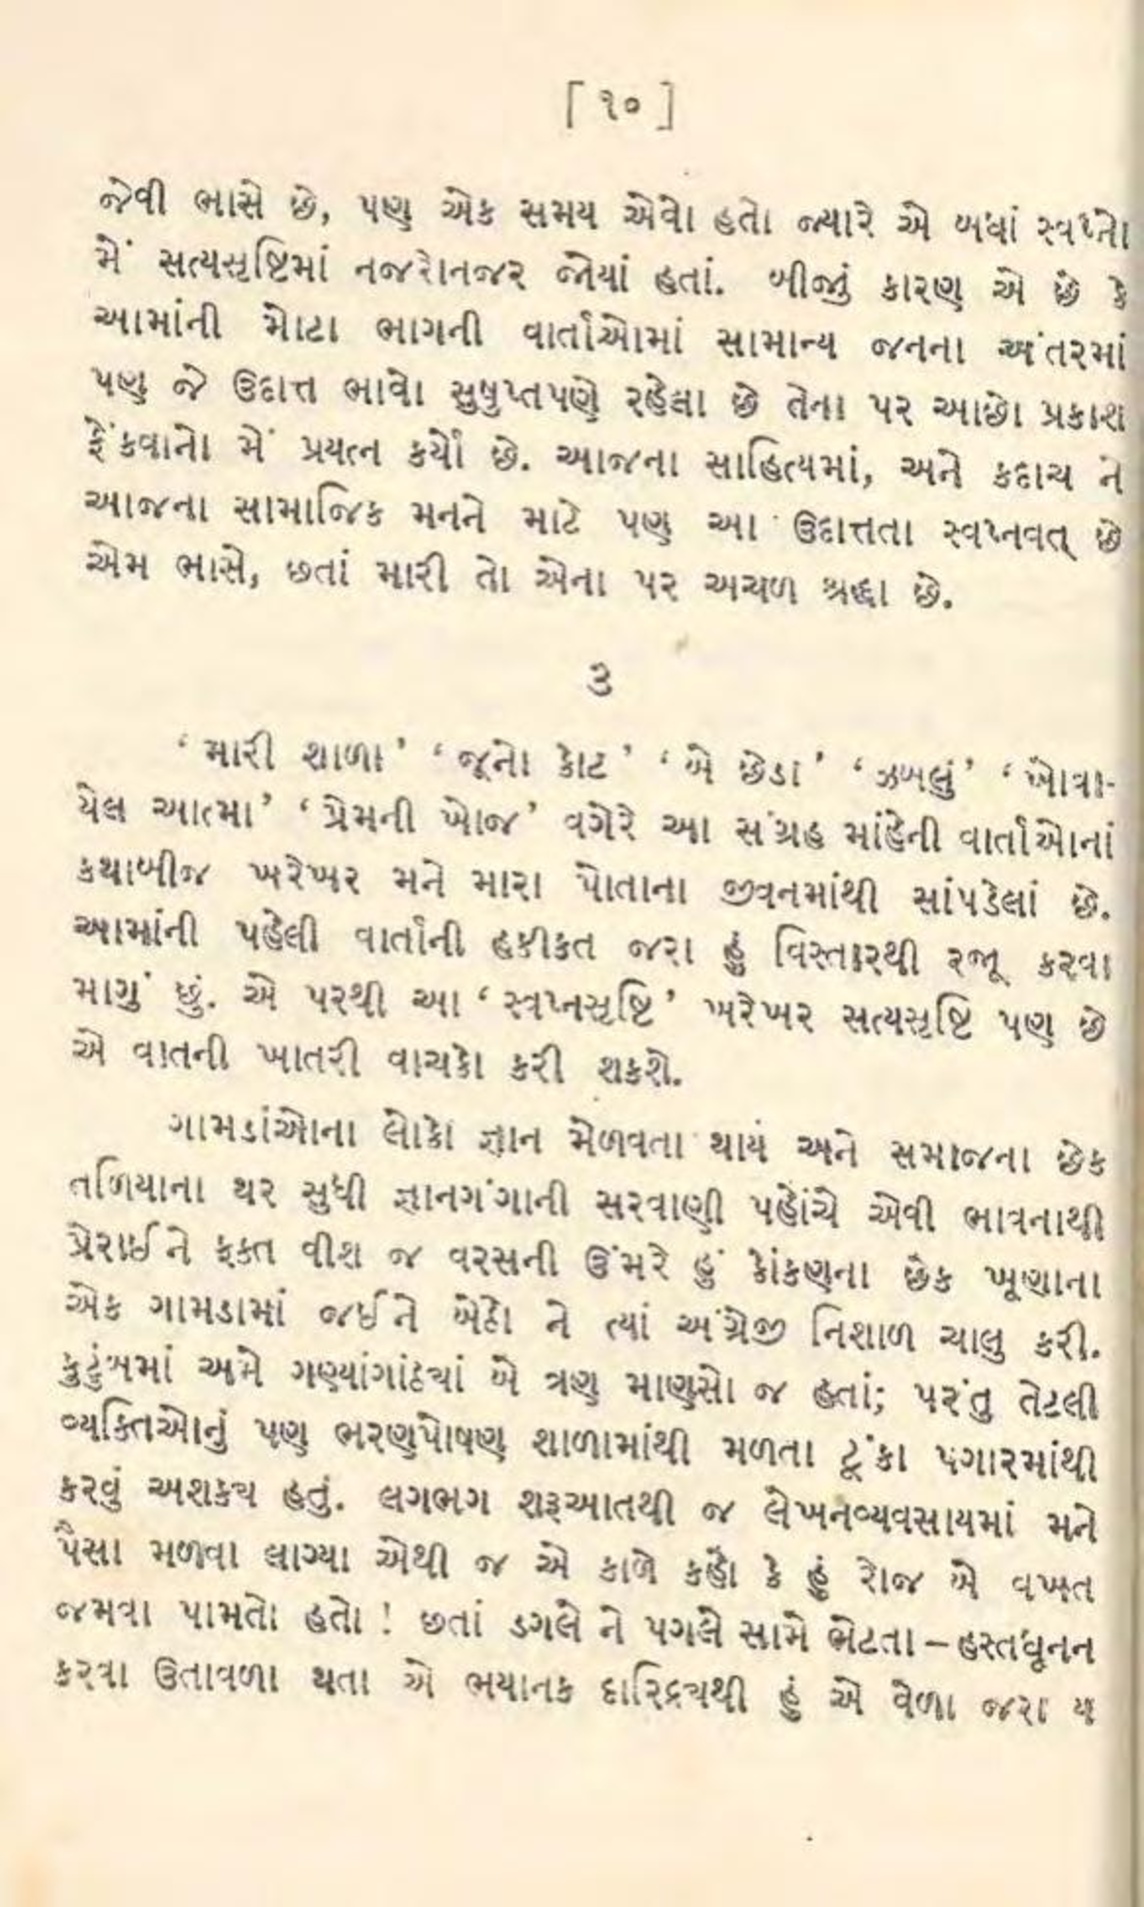 [ ૧૦ ]
જેવી ભાસે છે, પણ એક સમય એવો હતો જ્યારે એ બધાં સ્વપ્નો
મેં સત્યસૃષ્ટિમાં નજરોનજર જોયાં હતાં. બીજું કારણ એ છે કે
આમાંની મોટા ભાગની વાર્તાઓમાં સામાન્ય જનના અંતરમાં
પણ જે ઉદ્દાત્ત ભાવો સુષુપ્તપણે રહેલા છે તેના પર આછો પ્રકાશ
ફેંકવાનો મેં પ્રયત્ન કર્યો છે. આજના સાહિત્યમાં, અને કદાચ ને
આજના સામાજિક મનને માટે પણ આ ઉદ્દાત્તતા સ્વપ્નવત્ છે
એમ ભાસે, છતાં મારી તો એના પર અચળ શ્રદ્ધા છે.
૩
‘મારી શાળા’ ‘જૂનો કોટ’ ‘બે છેડા’ ‘ઝબલું’ ‘ખોવા-
યેલ આત્મા’ ‘પ્રેમની ખોજ’ વગેરે આ સંગ્રહ માંહેની વાર્તાઓનાં
કથાબીજ ખરેખર મને મારા પોતાના જીવનમાંથી સાંપડેલાં છે.
આમાંની પહેલી વાર્તાની હકીકત જરા હું વિસ્તારથી રજૂ કરવા
માગું છું. એ પરથી આ ‘સ્વપ્નસૃષ્ટિ’ ખરેખર સત્યસૃષ્ટિ પણ છે
એ વાતની ખાતરી વાચકો કરી શકશે.
ગામડાંઓના લોકો જ્ઞાન મેળવતા થાય અને સમાજના છેક
તળિયાના થર સુધી જ્ઞાનગંગાની સરવાણી પહોંચે એવી ભાવનાથી
પ્રેરાઈને ફક્ત વીશ જ વરસની ઉંમરે હું કોંકણના છેક ખૂણાના
એક ગામડામાં જઈને બેઠો ને ત્યાં અંગ્રેજી નિશાળ ચાલુ કરી.
કુટુંબમાં અમે ગણ્યાંગાંઠ્યાં બે ત્રણ માણસો જ હતાં; પરંતુ તેટલી
વ્યક્તિઓનું પણ ભરણપોષણ શાળામાંથી મળતા ટૂંકા પગારમાંથી
કરવું અશક્ય હતું. લગભગ શરૂઆતથી જ લેખનવ્યવસાયમાં મને
પૈસા મળવા લાગ્યા એથી જ એ કાળે કહો કે હું રોજ બે વખત
જમવા પામતો હતો ! છતાં ડગલે ને પગલે સામે ભેટતા – હસ્તધૂનન
કરવા ઉતાવળા થતા એ ભયાનક દારિદ્રયથી હું એ વેળા જરા ય